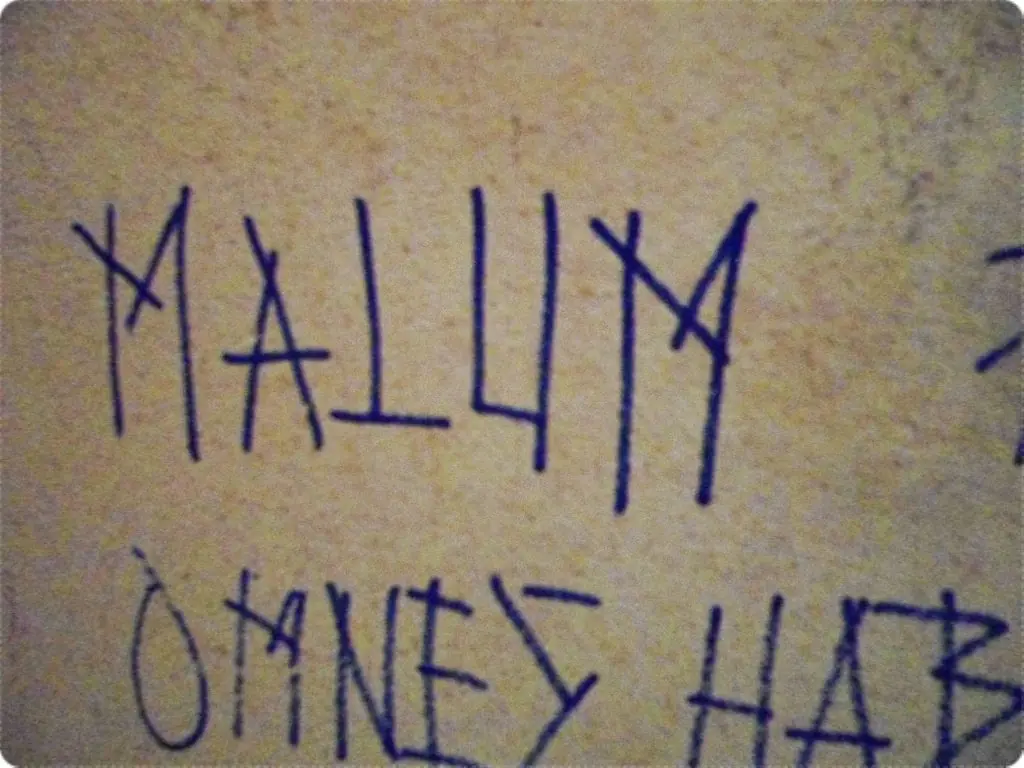 MALUM
OMNES HAB